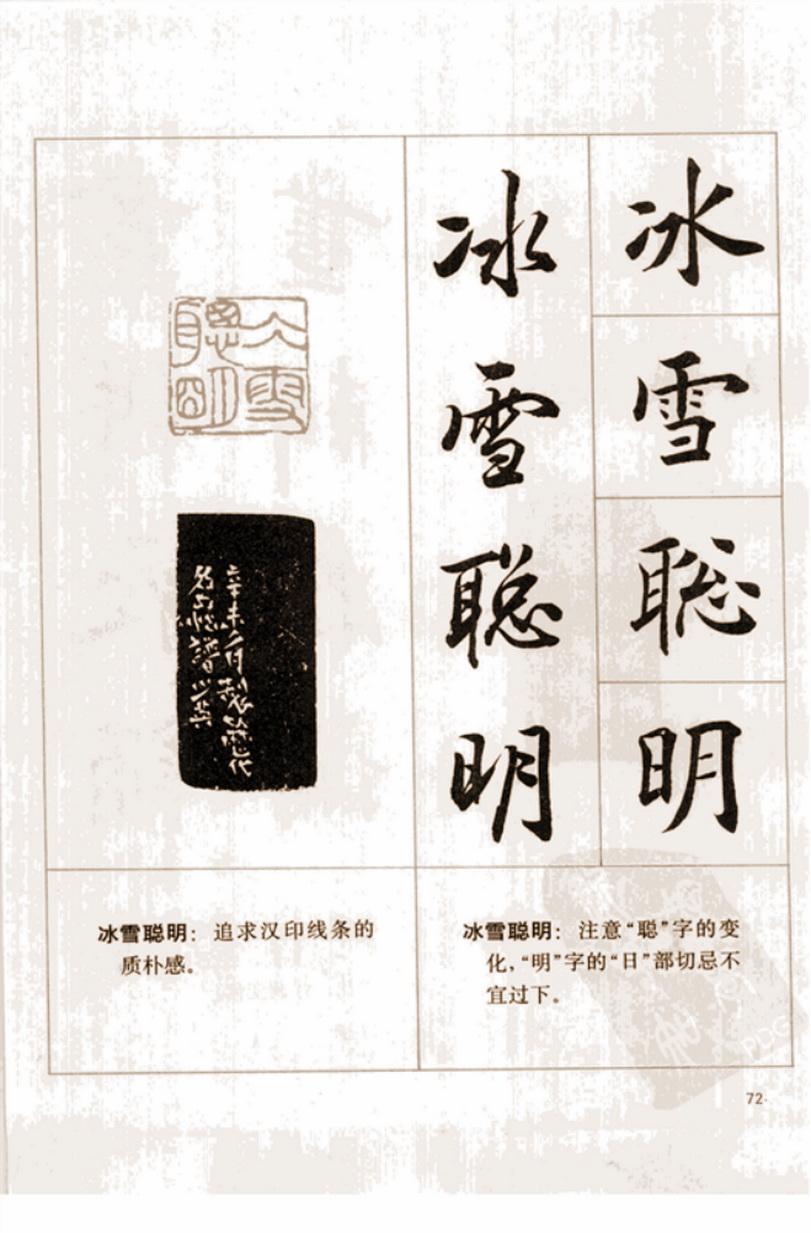 冰雪聪明
冰雪聪明
冰雪聪明：注意“聪”字的变
化，“明”字的“日”部切忌不
宜过下。
冰雪聪明：追求汉印线条的
质朴感。
72